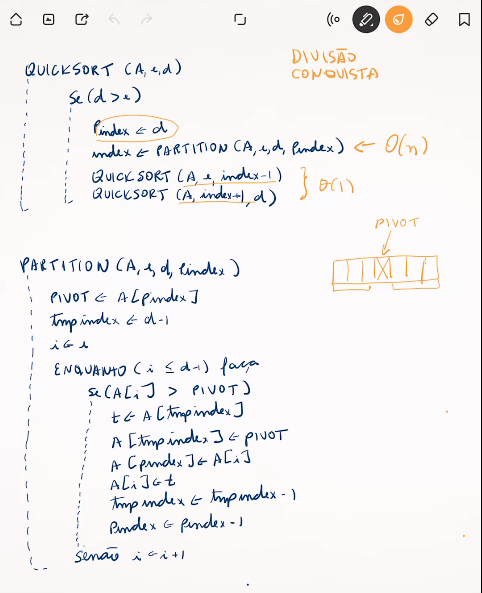 DIVISÃO
CONQUISTA
QUICKSORT (A, e, d)
se (d > e)
Pindex ← d
index ← PARTITION (A, e, d, Pindex) ← Θ(n)
QUICKSORT (A, e, index-1)
QUICKSORT (A, index+1, d) } Θ(1)
PIVOT
PARTITION (A, e, d, Pindex)
PIVOT ← A[pindex]
tmpindex ← d-1
i ← e
ENQUANTO (i ≤ d-1) faça
se (A[i] > PIVOT)
t ← A[tmpindex]
A[tmpindex] ← PIVOT
A[pindex] ← A[i]
A[i] ← t
tmpindex ← tmpindex - 1
Pindex ← Pindex - 1
senão i ← i+1